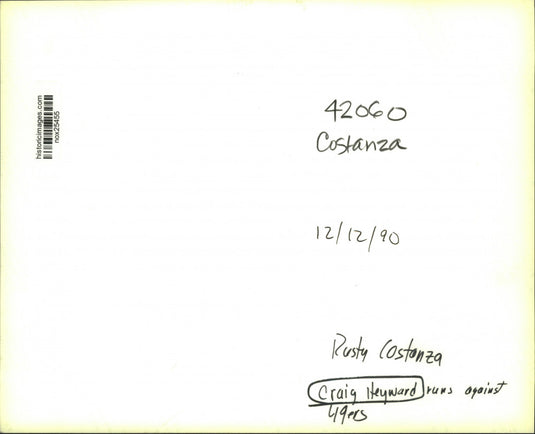 historicimages.com
nox25455
42060
Costanza
12/12/90
Rusty Costanza
Craig Heyward runs against
49ers